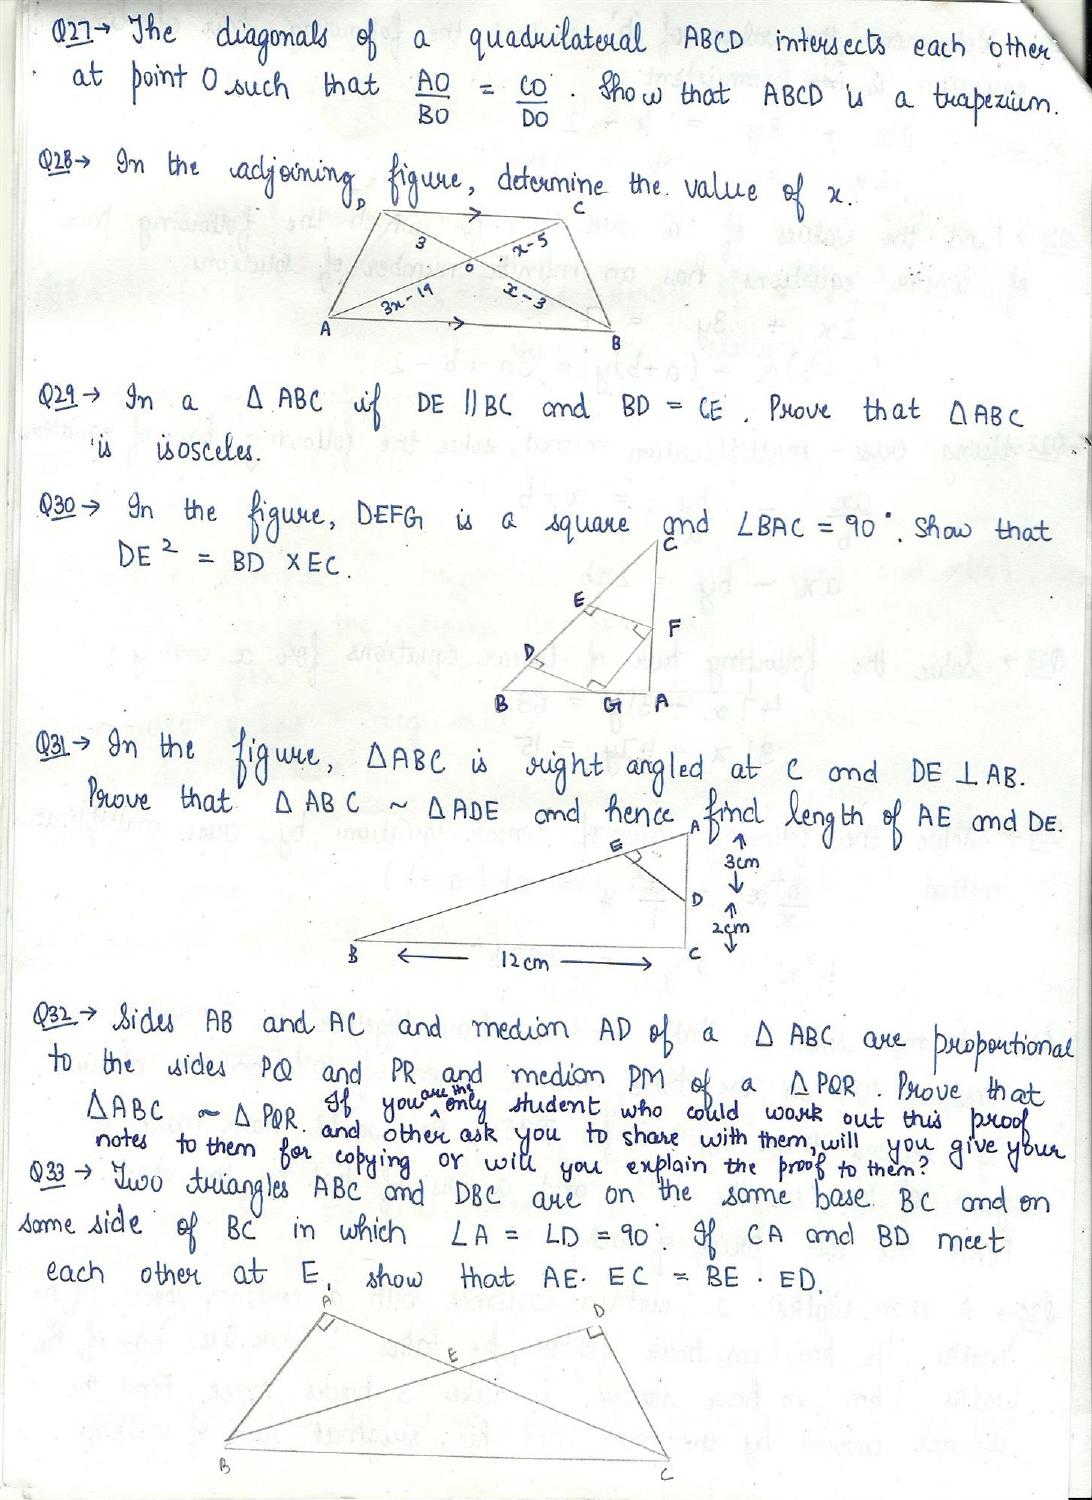 Q27→ The diagonals of a quadrilateral ABCD intersects each other
at point O such that AO/BO = CO/DO . Show that ABCD is a trapezium.
Q28→ In the adjoining figure, determine the value of x.
D
C
3
x-5
O
3x-19
x-3
A
B
Q29→ In a Δ ABC if DE || BC and BD = CE. Prove that Δ ABC
is isosceles.
Q30→ In the figure, DEFG is a square and ∠BAC = 90°. Show that
DE² = BD × EC.
C
E
F
D
B
G
A
Q31→ In the figure, ΔABC is right angled at C and DE ⊥ AB.
Prove that Δ ABC ~ Δ ADE and hence find length of AE and DE.
A
E
3cm
D
2cm
B
12cm
C
Q32→ Sides AB and AC and median AD of a Δ ABC are proportional
to the sides PQ and PR and median PM of a Δ PQR. Prove that
Δ ABC ~ Δ PQR. If you are the only student who could work out this proof
and other ask you to share with them, will you give your
notes to them for copying or will you explain the proof to them?
Q33→ Two triangles ABC and DBC are on the same base BC and on
same side of BC in which ∠A = ∠D = 90°. If CA and BD meet
each other at E, show that AE. EC = BE . ED.
A
D
E
B
C